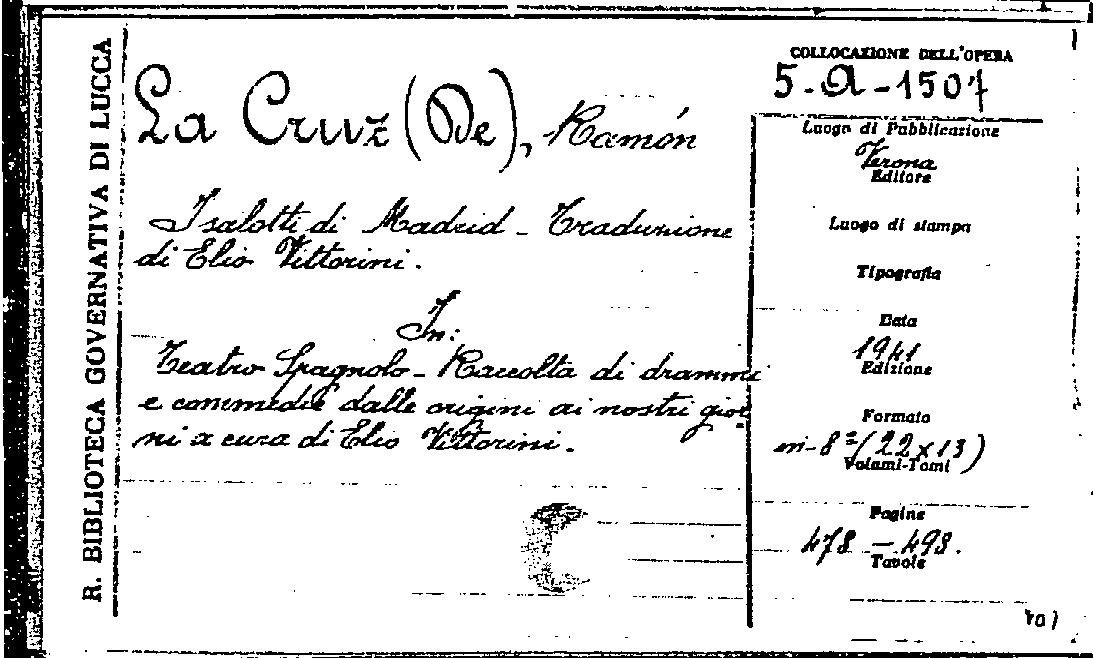 R. BIBLIOTECA GOVERNATIVA DI LUCCA
La Cruz (De), Ramón
I salotti di Madrid - Traduzione
di Elio Vittorini.
In:
Teatro Spagnolo - Raccolta di drammi
e commedie dalle origini ai nostri gior
ni a cura di Elio Vittorini.
COLLOCAZIONE DELL'OPERA
5.A-1507
Luogo di Pubblicazione
Verona
Editore
Luogo di stampa
Tipografia
Data
1941
Edizione
Formato
in-8º (22x13)
Volumi-Tomi
Pagine
478 - 493.
Tavole